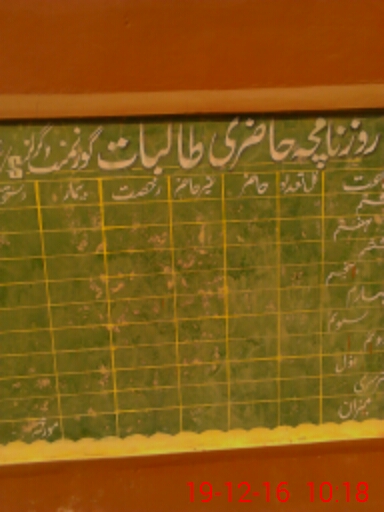 روزنامچہ حاضری طالبات گورنمنٹ گرلز
جماعت کل تعداد حاضر غیر حاضر رخصت بیمار دستخط
ہشتم
ہفتم
ششم
پنجم
چہارم
سوئم
دوئم
اوّل
میزان
مورخہ
19-12-16 10:18